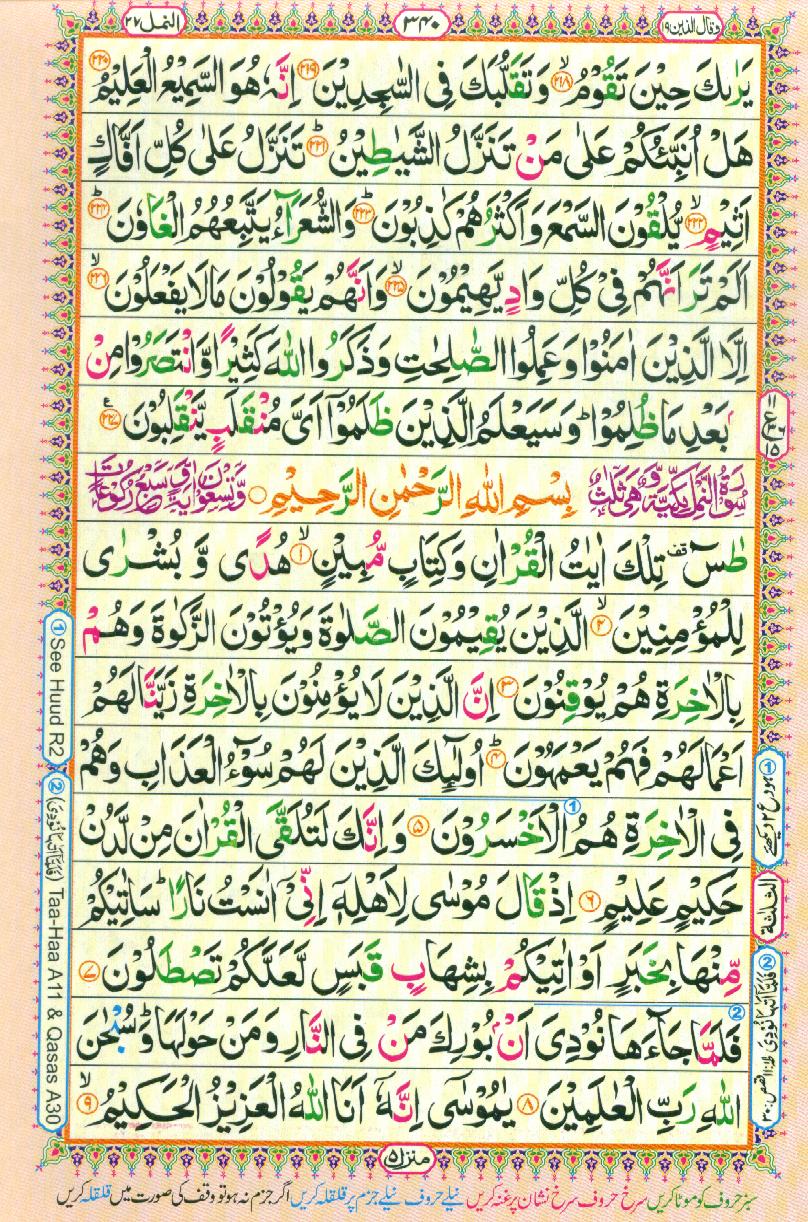 وقال الذين ١٩
٣٤٠
النمل ٢٧
يَرٰىكَ حِيْنَ تَقُوْمُ ﴿٢١٨﴾ وَتَقَلُّبَكَ فِى السّٰجِدِيْنَ ﴿٢١٩﴾ اِنَّهٗ هُوَ السَّمِيْعُ الْعَلِيْمُ ﴿٢٢٠﴾
هَلْ اُنَبِّئُكُمْ عَلٰى مَنْ تَنَزَّلُ الشَّيٰطِيْنُ ﴿٢٢١﴾ تَنَزَّلُ عَلٰى كُلِّ اَفَّاكٍ
اَثِيْمٍ ﴿٢٢٢﴾ يُّلْقُوْنَ السَّمْعَ وَاَكْثَرُهُمْ كٰذِبُوْنَ ﴿٢٢٣﴾ وَالشُّعَرَآءُ يَتَّبِعُهُمُ الْغَاوٗنَ ﴿٢٢٤﴾
اَلَمْ تَرَ اَنَّهُمْ فِىْ كُلِّ وَادٍ يَّهِيْمُوْنَ ﴿٢٢٥﴾ وَاَنَّهُمْ يَقُوْلُوْنَ مَا لَا يَفْعَلُوْنَ ﴿٢٢٦﴾
اِلَّا الَّذِيْنَ اٰمَنُوْا وَعَمِلُوا الصّٰلِحٰتِ وَذَكَرُوا اللّٰهَ كَثِيْرًا وَّانْتَصَرُوْا مِنْ
بَعْدِ مَا ظُلِمُوْا ؕ وَسَيَعْلَمُ الَّذِيْنَ ظَلَمُوْۤا اَىَّ مُنْقَلَبٍ يَّنْقَلِبُوْنَ ﴿٢٢٧﴾
سُوْرَةُ النَّمْلِ مَكِّيَّةٌ وَّهِىَ ثَلٰثٌ بِسْمِ اللّٰهِ الرَّحْمٰنِ الرَّحِيْمِ وَّتِسْعُوْنَ اٰيَةً وَّسَبْعُ رُكُوْعَاتٍ
طٰسٓ قف تِلْكَ اٰيٰتُ الْقُرْاٰنِ وَكِتَابٍ مُّبِيْنٍ ﴿١﴾ هُدًى وَّ بُشْرٰى
لِلْمُؤْمِنِيْنَ ﴿٢﴾ الَّذِيْنَ يُقِيْمُوْنَ الصَّلٰوةَ وَيُؤْتُوْنَ الزَّكٰوةَ وَهُمْ
بِالْاٰخِرَةِ هُمْ يُوْقِنُوْنَ ﴿٣﴾ اِنَّ الَّذِيْنَ لَا يُؤْمِنُوْنَ بِالْاٰخِرَةِ زَيَّنَّا لَهُمْ
اَعْمَالَهُمْ فَهُمْ يَعْمَهُوْنَ ﴿٤﴾ اُولٰٓئِكَ الَّذِيْنَ لَهُمْ سُوْٓءُ الْعَذَابِ وَهُمْ
فِى الْاٰخِرَةِ هُمُ الْاَخْسَرُوْنَ ﴿٥﴾ وَاِنَّكَ لَتُلَقَّى الْقُرْاٰنَ مِنْ لَّدُنْ
حَكِيْمٍ عَلِيْمٍ ﴿٦﴾ اِذْ قَالَ مُوْسٰى لِاَهْلِهٖۤ اِنِّىْۤ اٰنَسْتُ نَارًا ؕ سَاٰتِيْكُمْ
مِّنْهَا بِخَبَرٍ اَوْ اٰتِيْكُمْ بِشِهَابٍ قَبَسٍ لَّعَلَّكُمْ تَصْطَلُوْنَ ﴿٧﴾
فَلَمَّا جَآءَهَا نُوْدِىَ اَنْۢ بُوْرِكَ مَنْ فِى النَّارِ وَمَنْ حَوْلَهَا ؕ وَسُبْحٰنَ
اللّٰهِ رَبِّ الْعٰلَمِيْنَ ﴿٨﴾ يٰمُوْسٰۤى اِنَّهٗۤ اَنَا اللّٰهُ الْعَزِيْزُ الْحَكِيْمُ ﴿٩﴾
منزل ٥
سبز حروف کو موٹا کریں سرخ حروف سرخ نشان پر غنہ کریں نیلے حروف نیلے جزم پر قلقلہ کریں اگر جزم نہ ہو تو وقف کی صورت میں قلقلہ کریں
① See Huud R2
② (فَلَمَّآ اَتٰىهَا نُوْدِىَ) Taa-Haa A11 & Qasas A30
① ہود ع ٢ دیکھئے
الثلثة